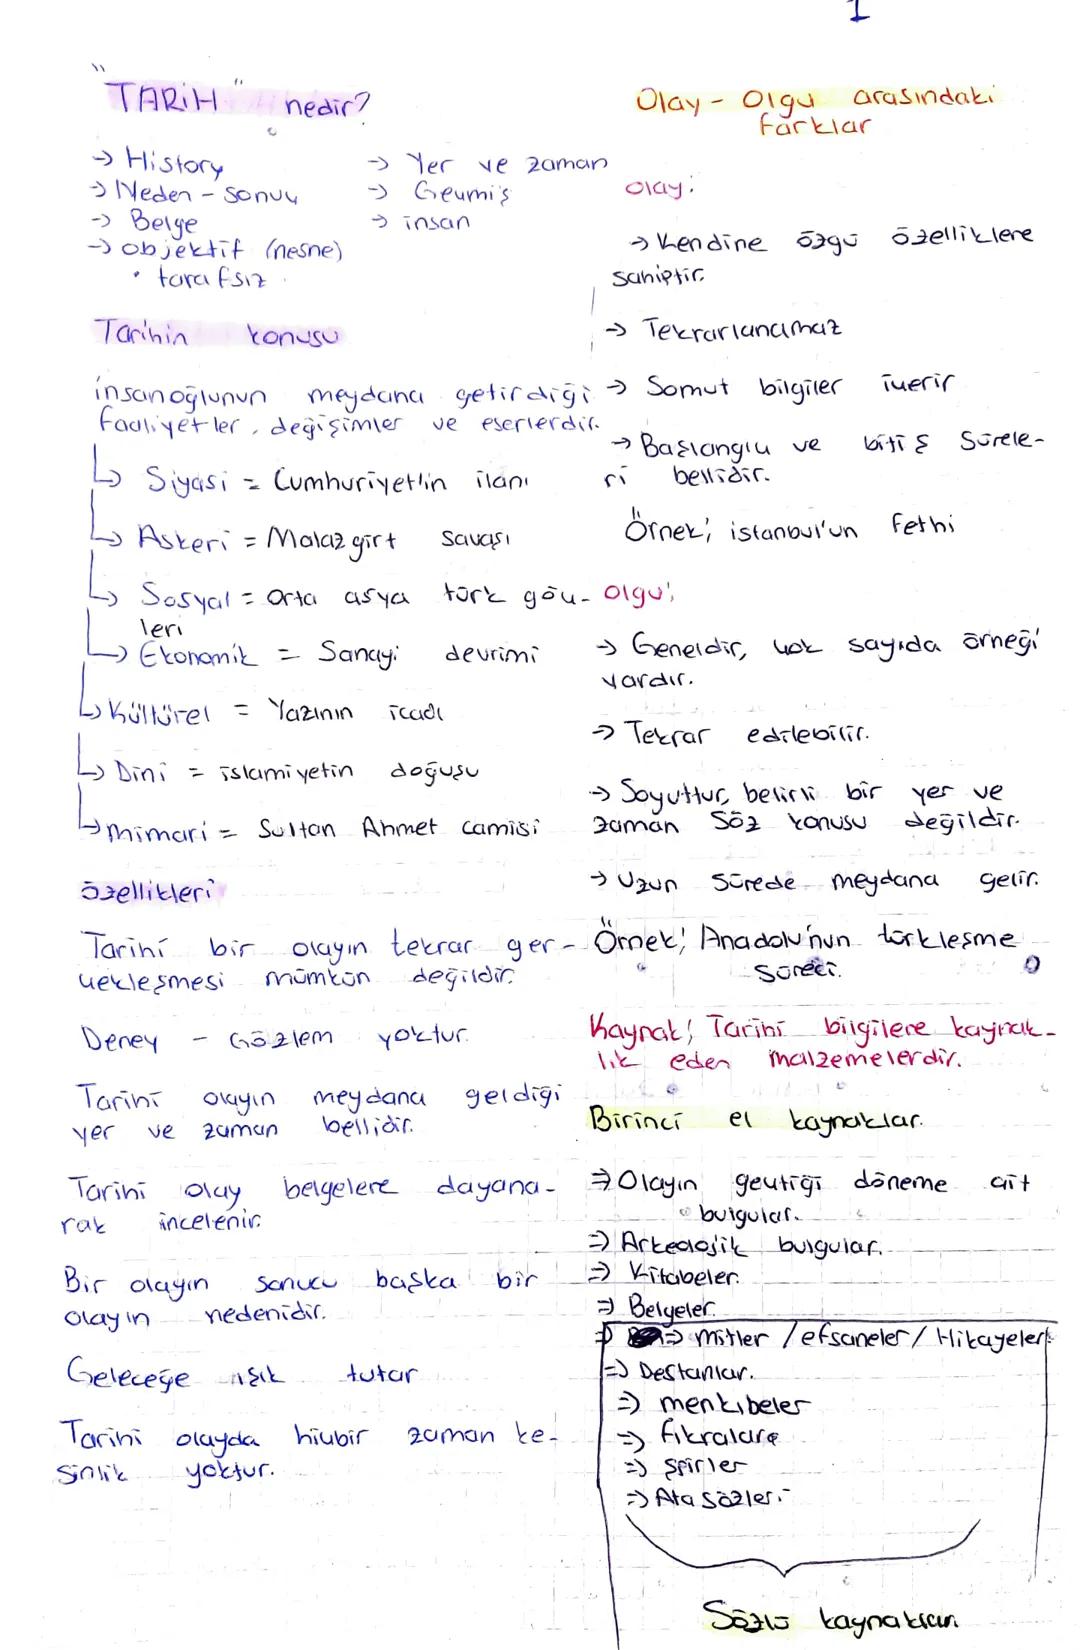 1
"TARİH" nedir?
→ History
→ Neden - sonuç
→ Belge
→ objektif (nesne)
• tarafsız
→ Yer ve zaman
→ Geçmiş
→ insan
Tarihin konusu
insanoğlunun meydana getirdiği
faaliyetler, değişimler ve eserlerdir.
↳ Siyasi = Cumhuriyet'in ilanı
↳ Askeri = Malazgirt savaşı
↳ Sosyal = Orta asya türk göç-
leri
↳ Ekonomik = Sanayi devrimi
↳ Kültürel = Yazının icadı
↳ Dini = islamiyetin doğuşu
↳ mimari = Sultan Ahmet camisi
özellikleri
Tarihi bir olayın tekrar ger-
çekleşmesi mümkün değildir.
Deney - Gözlem yoktur.
Tarihi olayın meydana geldiği
yer ve zaman bellidir.
Tarihi olay belgelere dayana-
rak incelenir.
Bir olayın sonucu başka bir
olayın nedenidir.
Geleceğe ışık tutar
Tarihi olayda hiçbir zaman ke-
sinlik yoktur.
Olay - Olgu arasındaki
farklar
olay:
→ Kendine özgü özelliklere
sahiptir.
→ Tekrarlanamaz
→ Somut bilgiler içerir
→ Başlangıç ve bitiş sürele-
ri bellidir.
Örnek; istanbul'un fethi
olgu;
→ Geneldir, çok sayıda örneği
vardır.
→ Tekrar edilebilir.
→ Soyuttur, belirli bir yer ve
zaman söz konusu değildir.
→ Uzun sürede meydana gelir.
Örnek; Anadolu'nun türkleşme
süreci.
Kaynak; Tarihi bilgilere kaynak-
lık eden malzemelerdir.
Birinci el kaynaklar.
⇒ Olayın geçtiği döneme ait
bulgular.
⇒ Arkeolojik bulgular.
⇒ Kitabeler.
⇒ Belgeler.
⇒ mitler / efsaneler / Hikayeler.
⇒ Destanlar.
⇒ menkıbeler
⇒ fıkralar
⇒ şiirler
⇒ Ata sözleri
Sözlü kaynakları